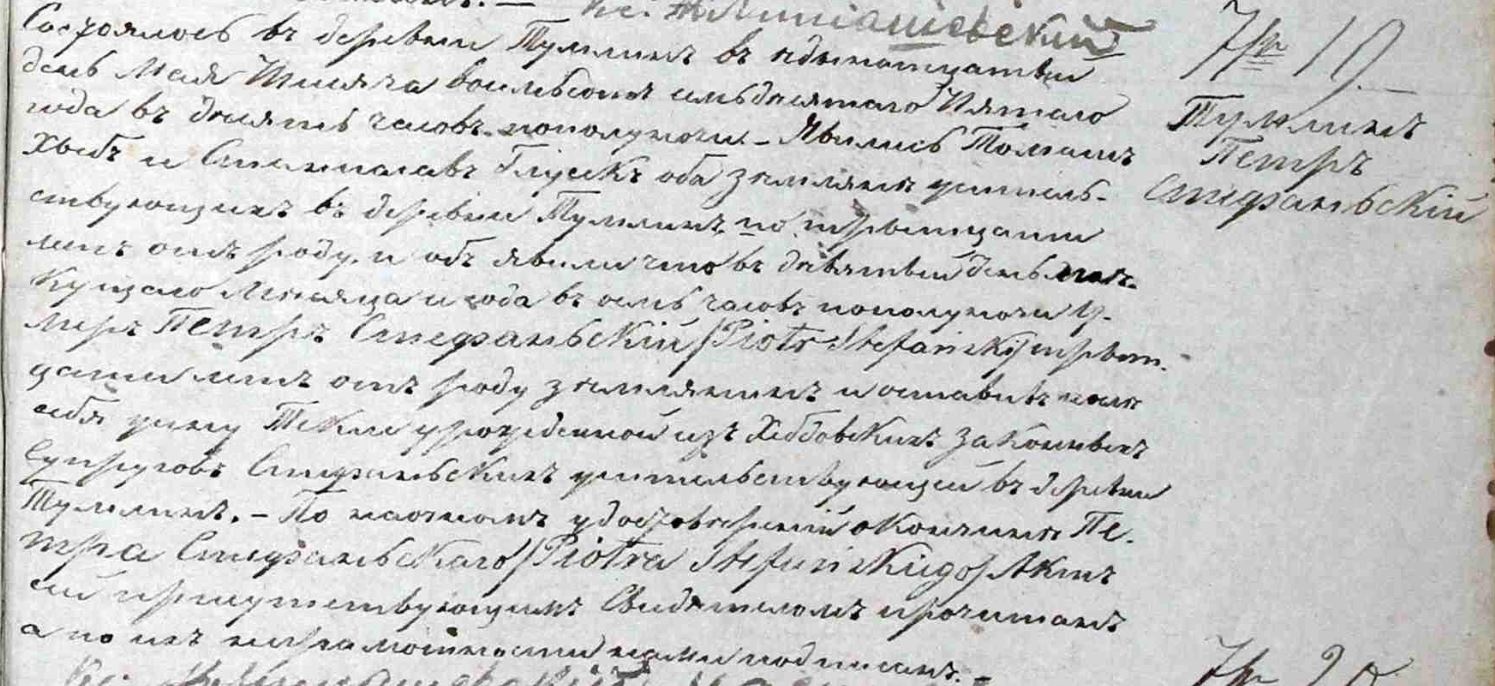 Кс. Липяшевский
№ 19.
Тумлинъ
Петръ
Стефаньский
Состоялось въ деревни Тумлинъ въ одынатцатый
день Мая Тысяча восемьсотъ семьдесятаго Пятаго
года въ десять часовъ пополуночи – Явились Томашъ
Хебъ и Станиславъ Глускъ оба земляне житель-
ствующихъ въ деревни Тумлинъ, по трытцати
летъ отъ роду, и объявили что въ девятый день те-
кущаго Месяца и года въ семь часовъ пополуночи у-
меръ Петръ Стефаньский /Piotr Stefański/ трыт-
цати летъ отъ роду землянинъ и оставивъ после
себя жену Текле урожденной изъ Хебдовскихъ законныхъ
Супруговъ Стефаньскихъ жительствующей въ деревни
Тумлинъ. – По наочномъ удостоверений окончине Пе-
тра Стефаньскаго /Piotra Stefańskiego/ Актъ
сий присутствующимъ Свидетеломъ прочитанъ
а по ихъ неграмотности нами подписанъ. –
№ 20